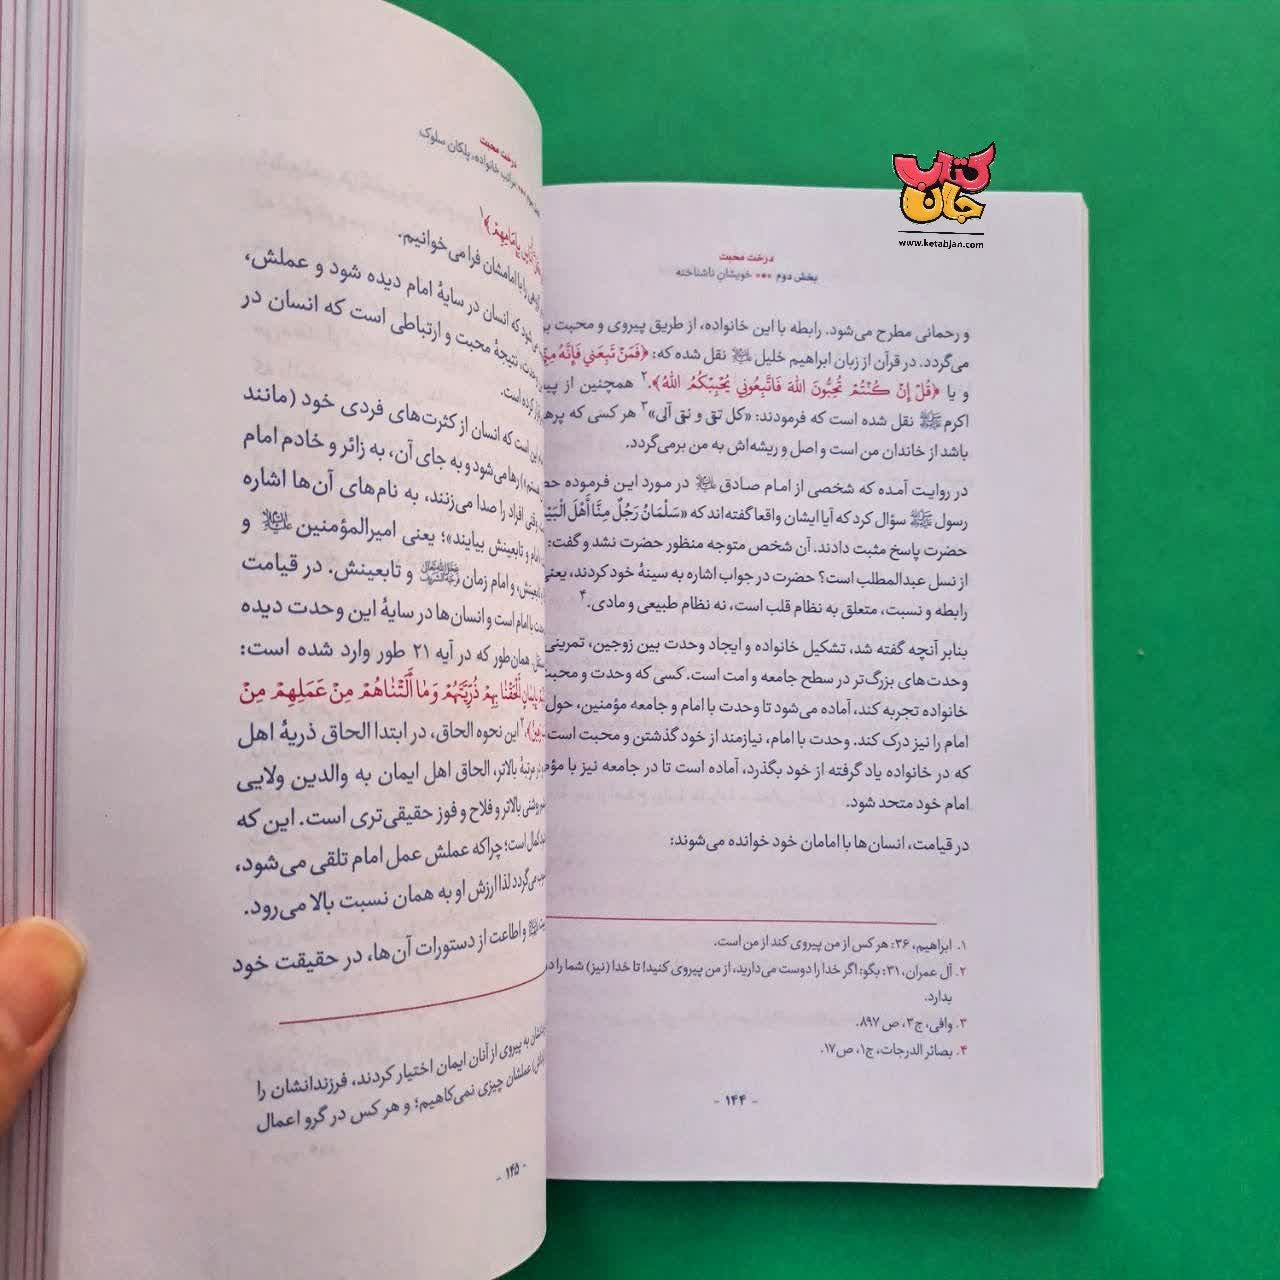 کتاب
جان
www.ketabjan.com
درخت محبت
بخش دوم *** خویشان ناشناخته
و رحمانی مطرح می‌شود. رابطه با این خانواده، از طریق پیروی و محبت
می‌گردد. در قرآن از زبان ابراهیم خلیل نقل شده که: ﴿فَمَنْ تَبِعَنِي فَإِنَّهُ
و یا ﴿قُلْ إِنْ كُنْتُمْ تُحِبُّونَ اللّٰهَ فَاتَّبِعُونِي يُحْبِبْكُمُ اللّٰهُ﴾.۲ همچنین از
اکرم ﷺ نقل شده است که فرمودند: «کل تقی و نقی آلی»۳ هر کسی که
باشد از خاندان من است و اصل و ریشه‌اش به من برمی‌گردد.
در روایت آمده که شخصی از امام صادق در مورد این فرموده
رسول ﷺ سؤال کرد که آیا ایشان واقعا گفته‌اند که «سَلْمَانُ رَجُلٌ مِنَّا أَهْلَ
حضرت پاسخ مثبت دادند. آن شخص متوجه منظور حضرت نشد و گفت:
از نسل عبدالمطلب است؟ حضرت در جواب اشاره به سینهٔ خود کردند، یعنی
رابطه و نسبت، متعلق به نظام قلب است، نه نظام طبیعی و مادی.۴
بنابر آنچه گفته شد، تشکیل خانواده و ایجاد وحدت بین زوجین، تمرینی
وحدت‌های بزرگ‌تر در سطح جامعه و امت است. کسی که وحدت و محبت
خانواده تجربه کند، آماده می‌شود تا وحدت با امام و جامعه مؤمنین، حول
امام را نیز درک کند. وحدت با امام، نیازمند از خود گذشتن و محبت است.
که در خانواده یاد گرفته از خود بگذرد، آماده است تا در جامعه نیز با
امام خود متحد شود.
در قیامت، انسان‌ها با امامان خود خوانده می‌شوند:
۱. ابراهیم، ۳۶: هر کس از من پیروی کند از من است.
۲. آل عمران، ۳۱: بگو: اگر خدا را دوست می‌دارید، از من پیروی کنید! تا خدا (نیز) شما را
بدارد.
۳. وافی، ج۳، ص ۸۹۷.
۴. بصائر الدرجات، ج۱، ص۱۷.
- ۱۴۴ -
درخت محبت
خانواده، پلکان سلوک
بِإِمَامِهِمْ﴾۱
را با امامشان فرا می‌خوانیم.
که انسان در سایهٔ امام دیده شود و عملش،
نتیجهٔ محبت و ارتباطی است که انسان در
کرده است.
این است که انسان از کثرت‌های فردی خود (مانند
رها می‌شود و به جای آن، به زائر و خادم امام
وقتی افراد را صدا می‌زنند، به نام‌های آن‌ها اشاره
امام و تابعینش بیایند»؛ یعنی امیرالمؤمنین و
و امام زمان و تابعینش. در قیامت
با امام است و انسان‌ها در سایهٔ این وحدت دیده
همان‌طور که در آیه ۲۱ طور وارد شده است:
بِإِيمَانٍ أَلْحَقْنَا بِهِمْ ذُرِّيَّتَهُمْ وَمَا أَلَتْنَاهُمْ مِنْ عَمَلِهِمْ مِنْ
این نحوه الحاق، در ابتدا الحاق ذریهٔ اهل
در مرتبهٔ بالاتر، الحاق اهل ایمان به والدین ولایی
بالاتر و فلاح و فوز حقیقی‌تری است. این که
کمال است؛ چراکه عملش عمل امام تلقی می‌شود،
می‌گردد لذا ارزش او به همان نسبت بالا می‌رود.
و اطاعت از دستورات آن‌ها، در حقیقت خود
به پیروی از آنان ایمان اختیار کردند، فرزندانشان را
عملشان چیزی نمی‌کاهیم؛ و هر کس در گرو اعمال
- ۱۴۵ -